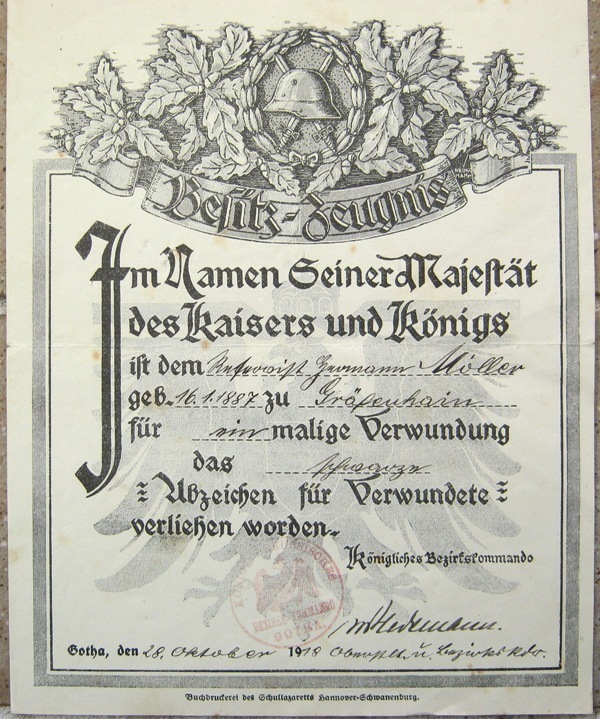 Besitz-Zeugnis
Im Namen Seiner Majestät
des Kaisers und Königs
ist dem Reservist Hermann Möller
geb. 16.1.1887 zu Gräfenhain
für ein malige Verwundung
das schwarze
Abzeichen für Verwundete
verliehen worden.
Königliches Bezirkskommando
Gotha, den 28. Oktober 1918 Oberstlt. u. Bezirks Kdr.
Buchdruckerei des Schullazaretts Hannover-Schwanenburg.